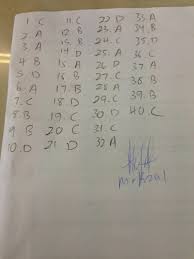 1. C
2. A
3. A
4. B
5. D
6. A
7. C
8. B
9. B
10. D
11. C
12. B
15. B
14. D
15. A
16. B
17. B
18. D
19. C
20 C
21 D
22. D
23. A
24. C
25. A
26. D
27. A
28. B
29. C
30. D
31. C
32 A
33. A
34. B
35. D
36. C
37. A
38. B
39. B
40. C